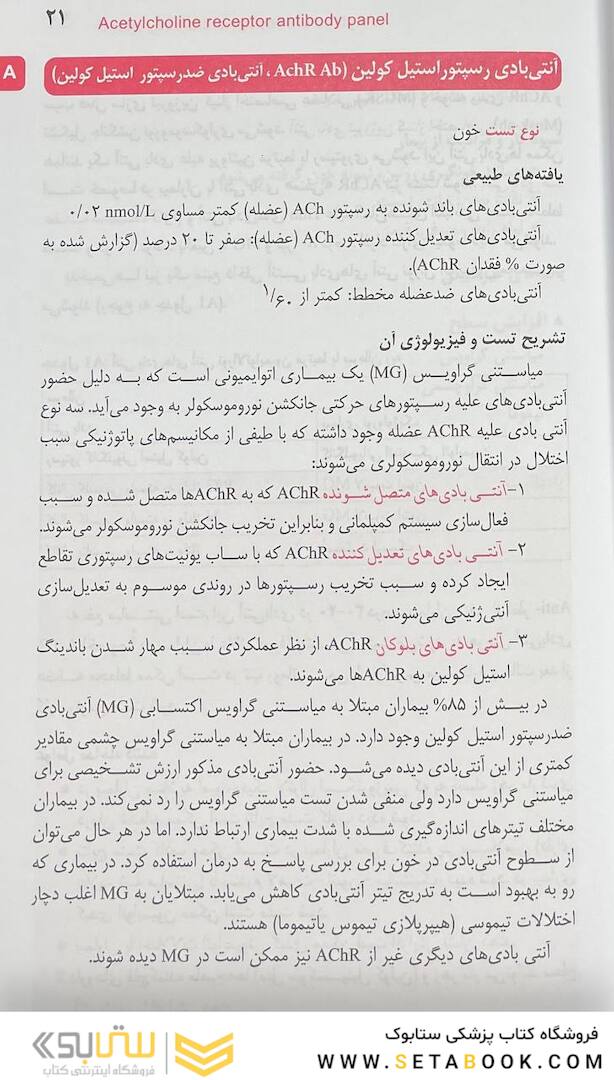 ۲۱ Acetylcholine receptor antibody panel
A
آنتی‌بادی رسپتوراستیل کولین (AchR Ab ، آنتی‌بادی ضدرسپتور استیل کولین)
نوع تست خون
یافته‌های طبیعی
آنتی‌بادی‌های باند شونده به رسپتور ACh (عضله) کمتر مساوی ۰/۰۲ nmol/L
آنتی‌بادی‌های تعدیل‌کننده رسپتور ACh (عضله): صفر تا ۲۰ درصد (گزارش شده به
صورت % فقدان AChR).
آنتی‌بادی‌های ضدعضله مخطط: کمتر از ۱/۶۰
تشریح تست و فیزیولوژی آن
میاستنی گراویس (MG) یک بیماری اتوایمیونی است که به دلیل حضور
آنتی‌بادی‌های علیه رسپتورهای حرکتی جانکشن نوروموسکولر به وجود می‌آید. سه نوع
آنتی بادی علیه AChR عضله وجود داشته که با طیفی از مکانیسم‌های پاتوژنیکی سبب
اختلال در انتقال نوروموسکولری می‌شوند:
۱-آنتی بادی‌های متصل شونده AChR که به AChRها متصل شده و سبب
فعال‌سازی سیستم کمپلمانی و بنابراین تخریب جانکشن نوروموسکولر می‌شوند.
۲- آنتی بادی‌های تعدیل کننده AChR که با ساب یونیت‌های رسپتوری تقاطع
ایجاد کرده و سبب تخریب رسپتورها در روندی موسوم به تعدیل‌سازی
آنتی‌ژنیکی می‌شوند.
۳- آنتی بادی‌های بلوکان AChR، از نظر عملکردی سبب مهار شدن باندینگ
استیل کولین به AChRها می‌شوند.
در بیش از ۸۵% بیماران مبتلا به میاستنی گراویس اکتسابی (MG) آنتی‌بادی
ضدرسپتور استیل کولین وجود دارد. در بیماران مبتلا به میاستنی گراویس چشمی مقادیر
کمتری از این آنتی‌بادی دیده می‌شود. حضور آنتی‌بادی مذکور ارزش تشخیصی برای
میاستنی گراویس دارد ولی منفی شدن تست میاستنی گراویس را رد نمی‌کند. در بیماران
مختلف تیترهای اندازه‌گیری شده با شدت بیماری ارتباط ندارد. اما در هر حال می‌توان
از سطوح آنتی‌بادی در خون برای بررسی پاسخ به درمان استفاده کرد. در بیماری که
رو به بهبود است به تدریج تیتر آنتی‌بادی کاهش می‌یابد. مبتلایان به MG اغلب دچار
اختلالات تیموسی (هیپرپلازی تیموس یاتیموما) هستند.
آنتی بادی‌های دیگری غیر از AChR نیز ممکن است در MG دیده شوند.
فروشگاه کتاب پزشکی ستابوک
WWW.SETABOOK.COM
ستابوک
فروشگاه اینترنتی کتاب